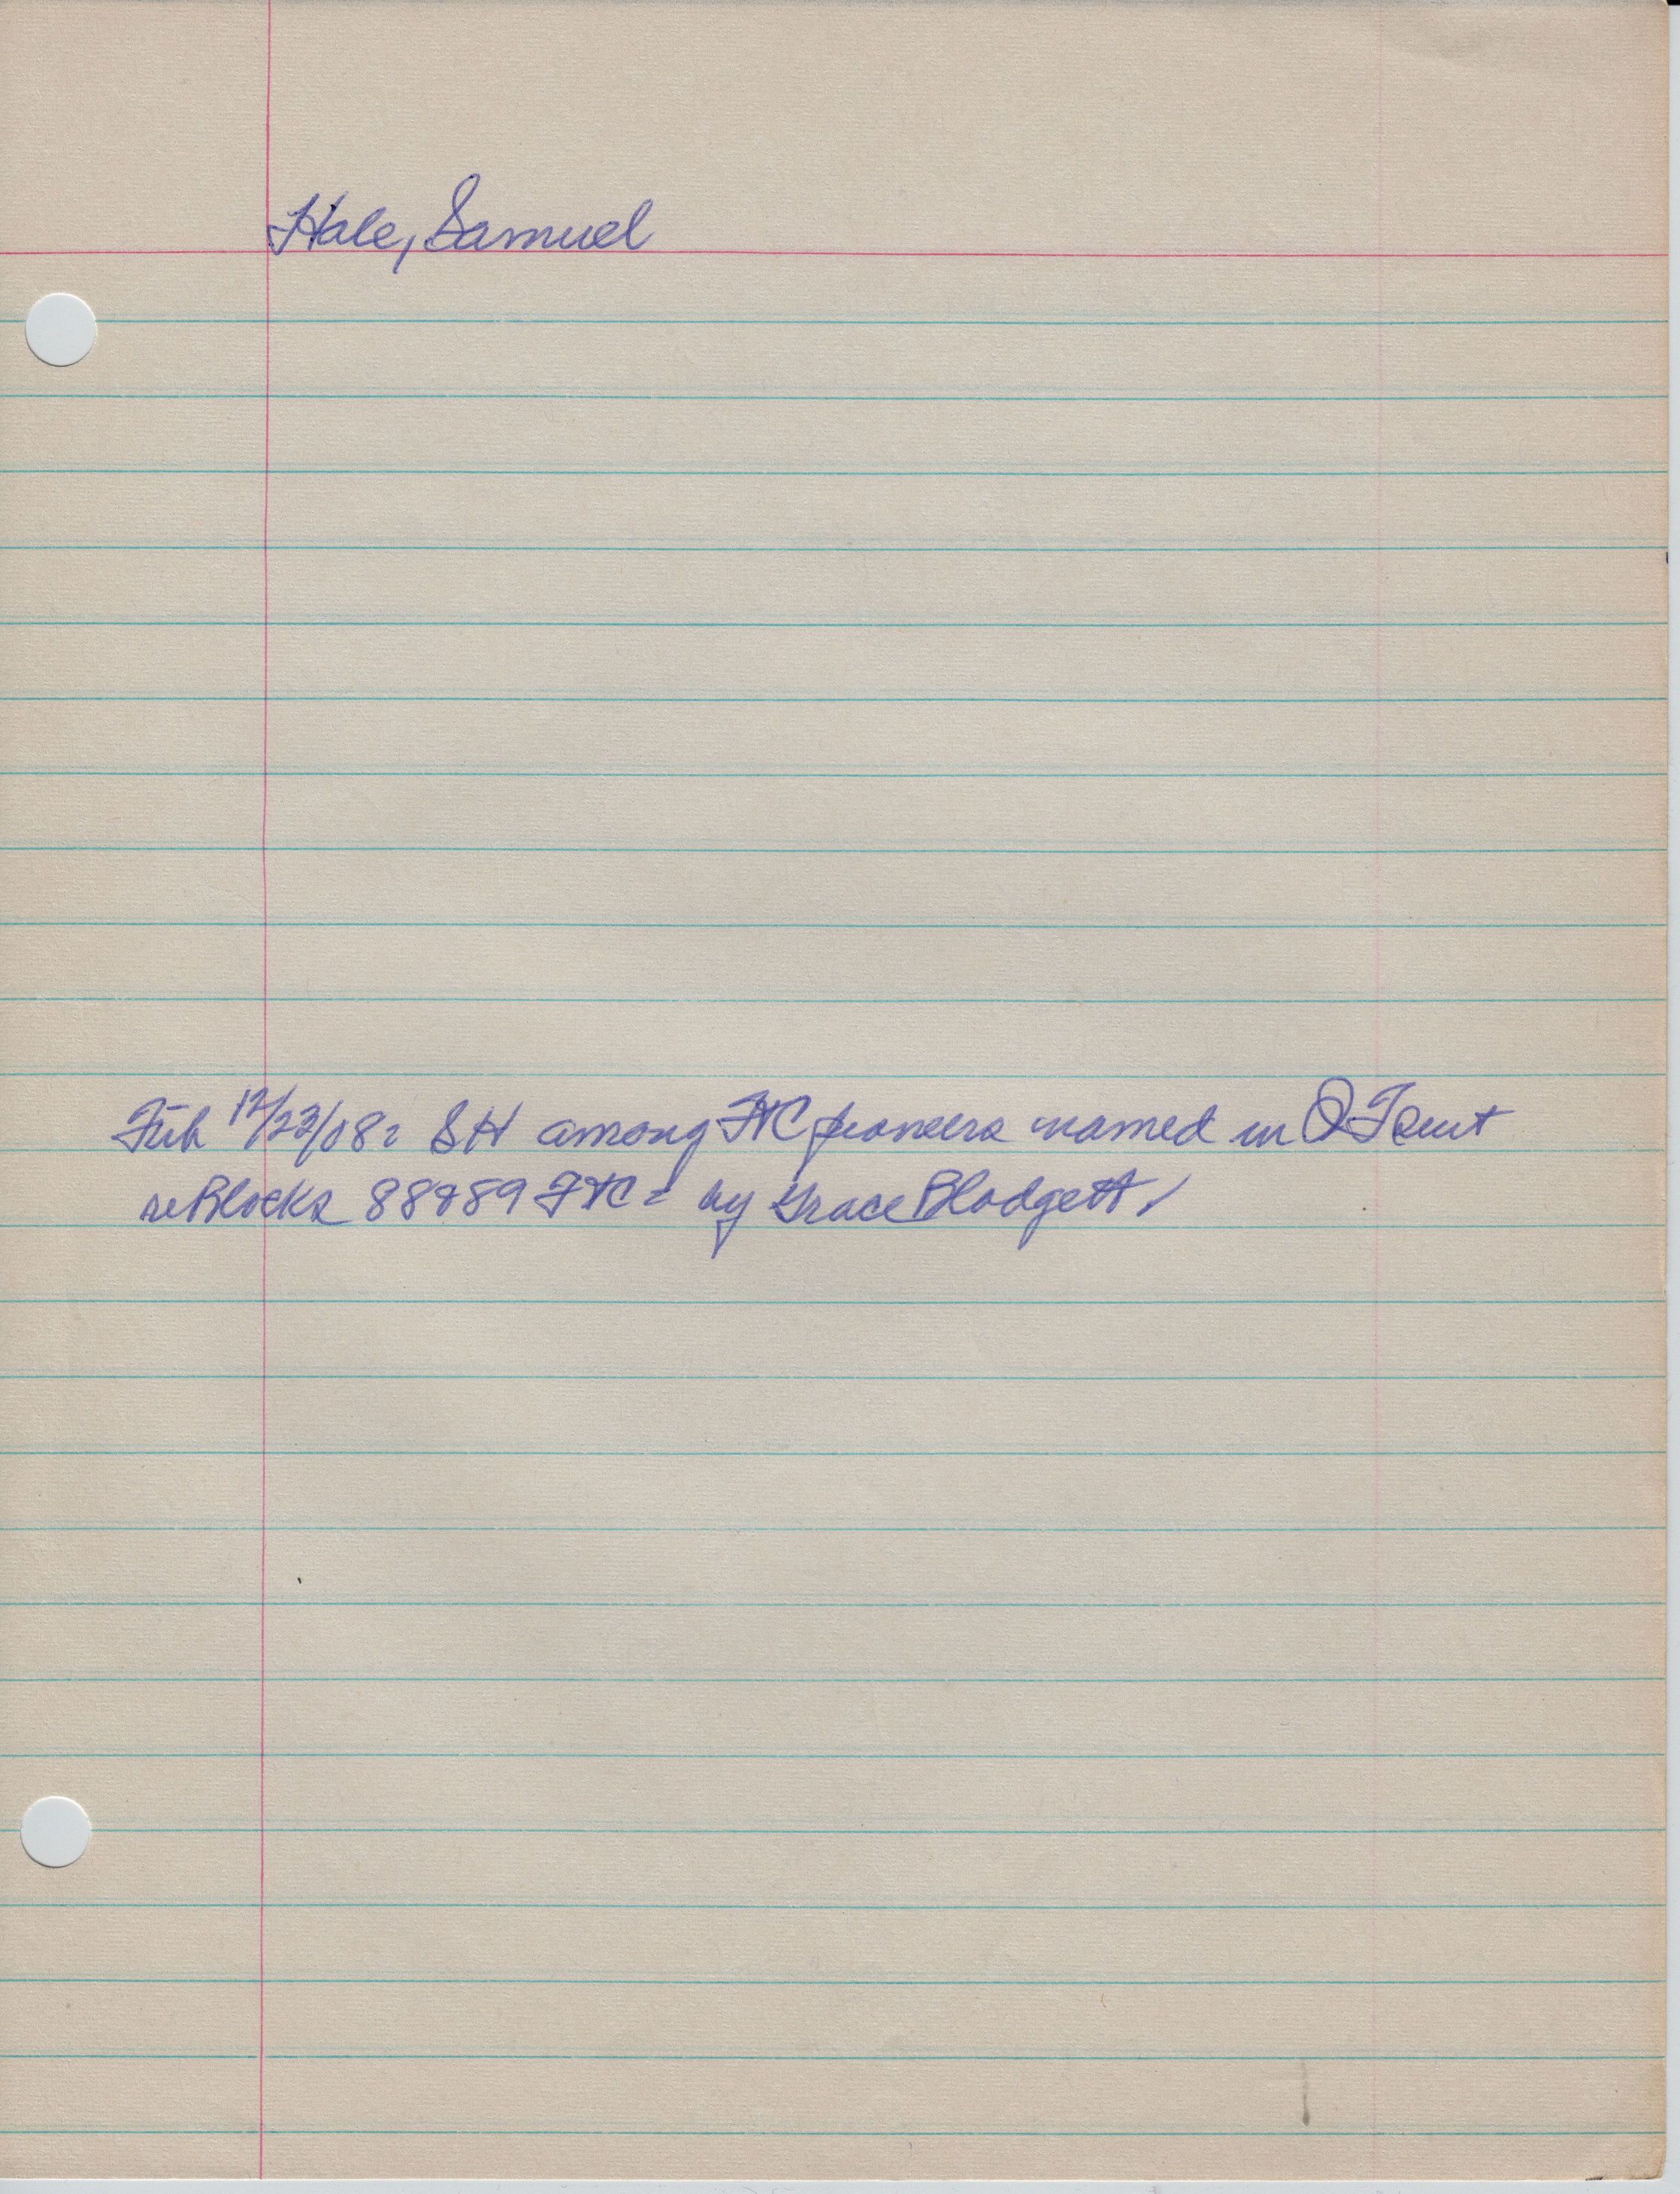 Hale, Samuel
Trib 12/23/08: SH among FTC pioneers named in QT suit
re Blocks 88&89 FTC = by Grace Blodgett.